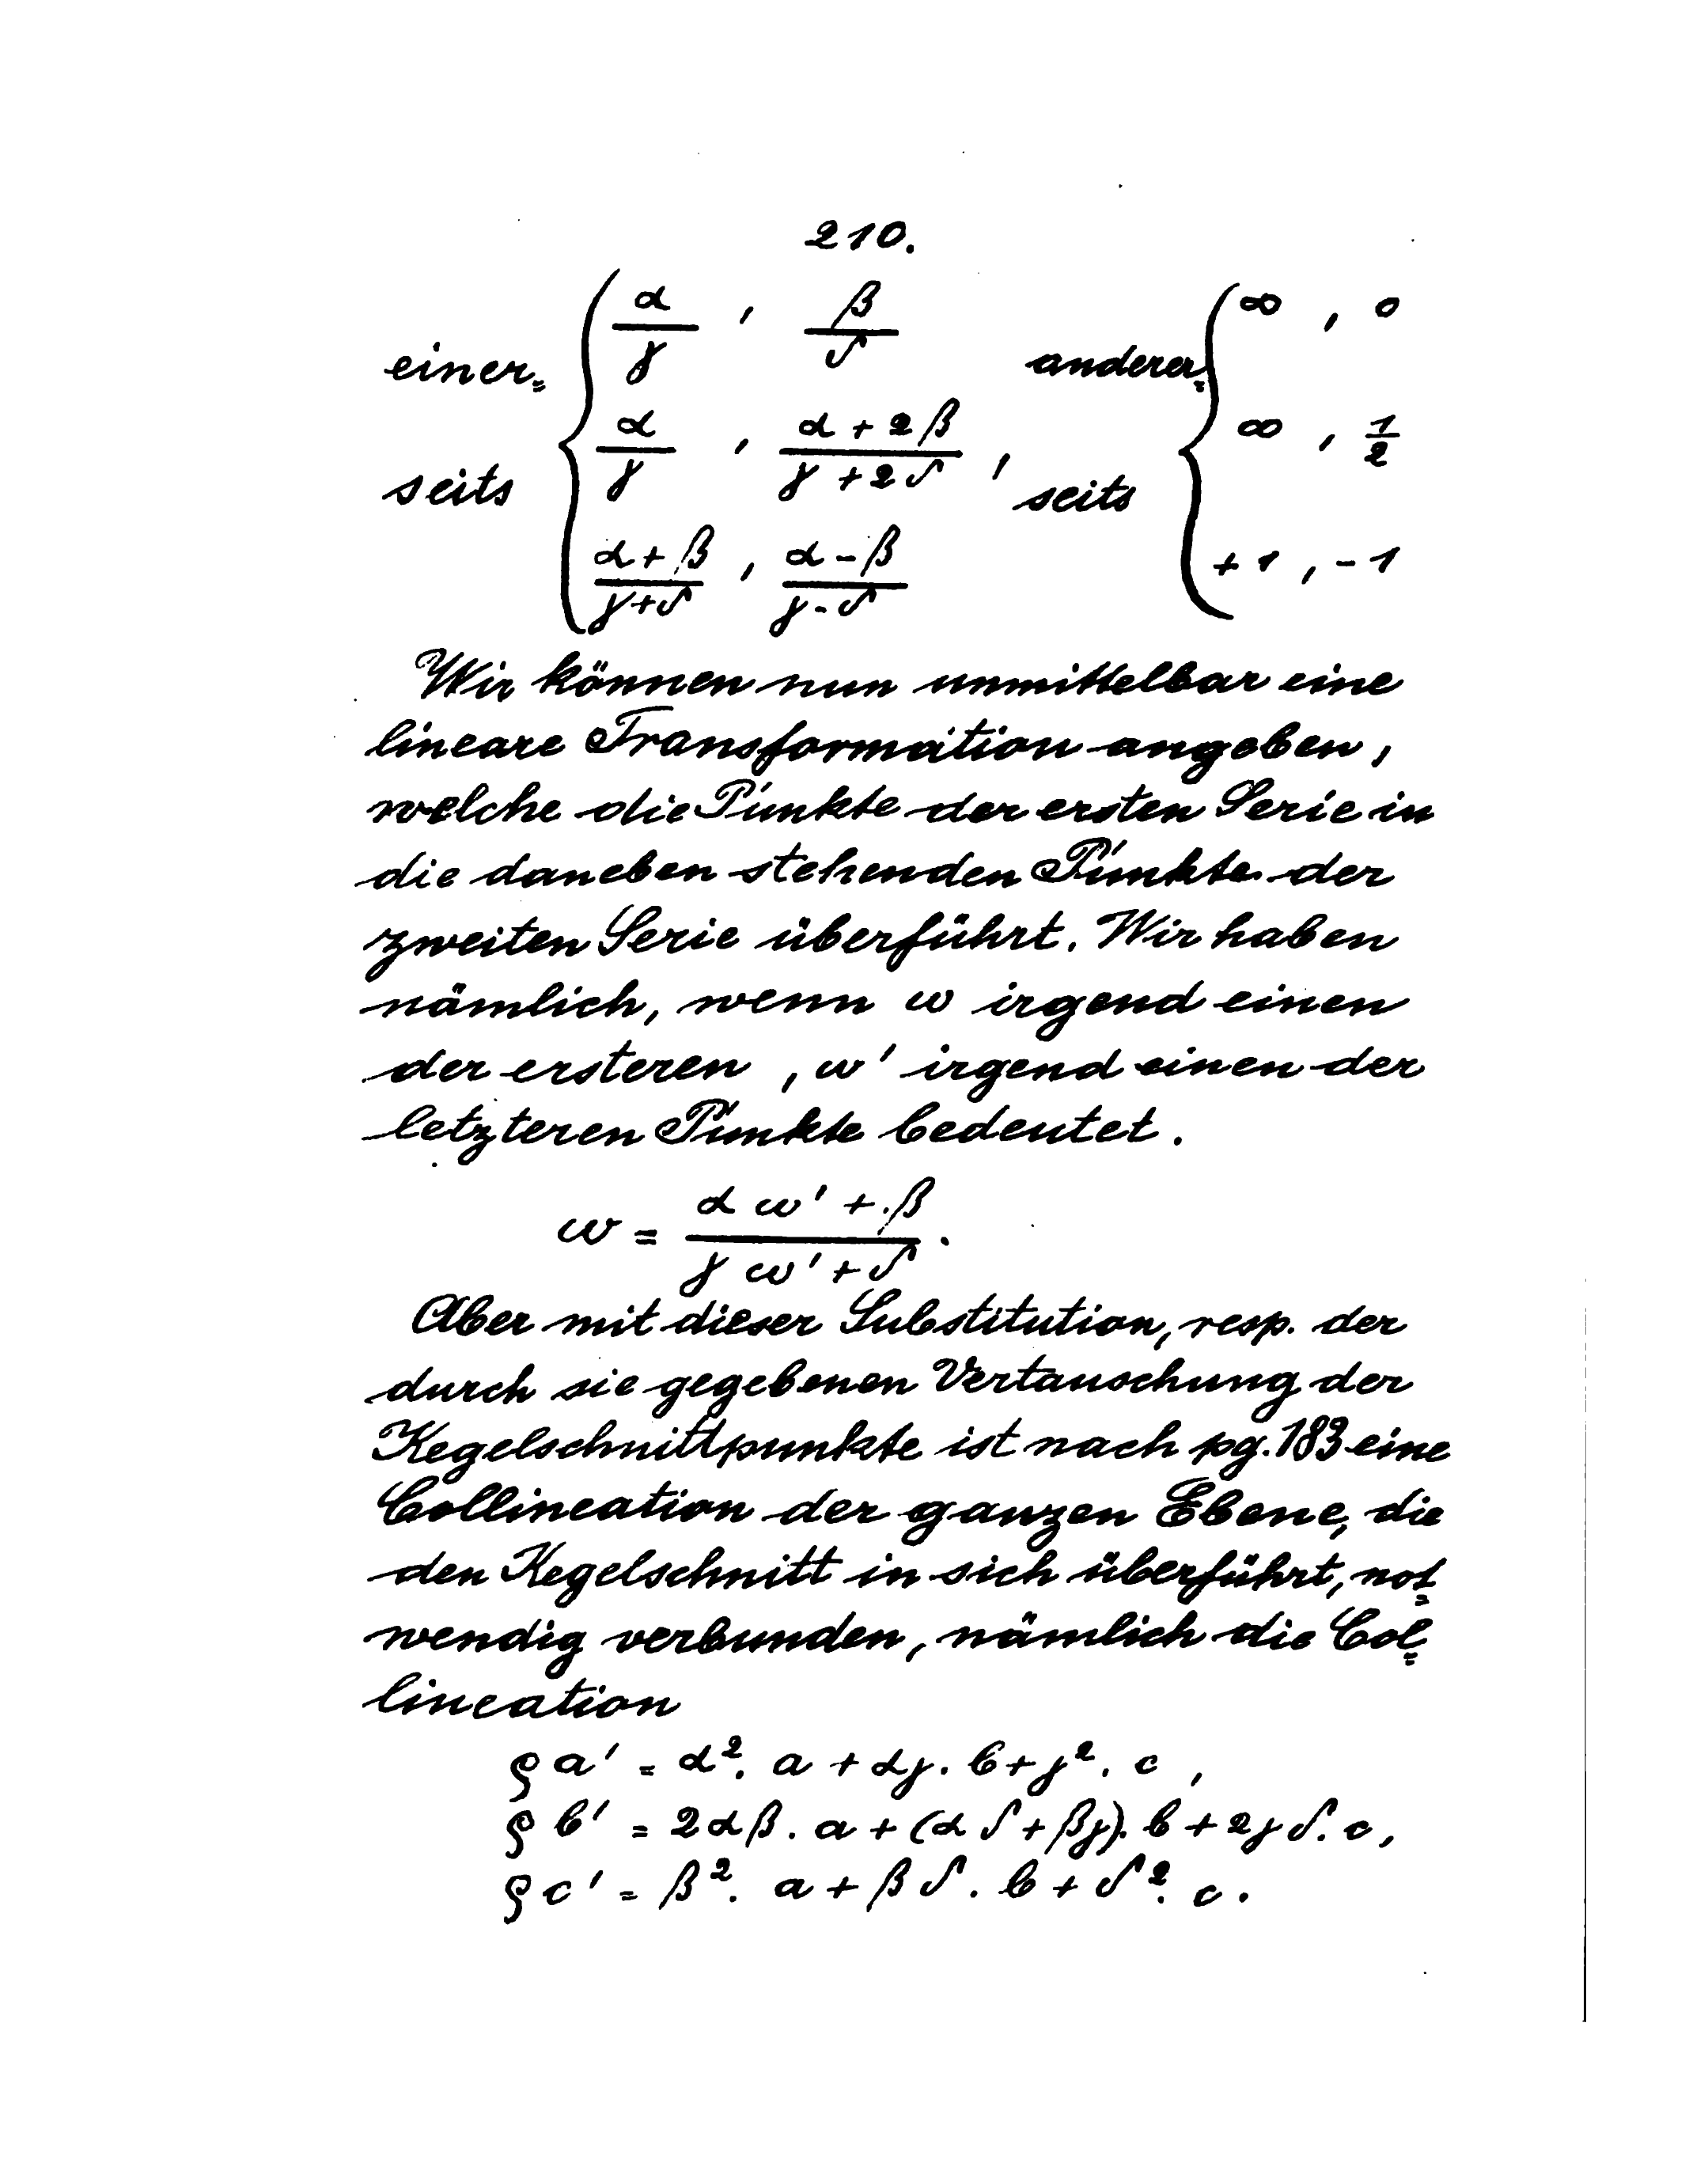 210.
einer= { α/γ , β/δ anderer= { ∞ , 0
α/γ , (α + 2β)/(γ + 2δ) , ∞ , 1/2
seits seits
(α + β)/(γ + δ) , (α - β)/(γ - δ) + 1 , - 1
Wir können nun unmittelbar eine
lineare Transformation angeben,
welche die Punkte der ersten Serie in
die daneben stehenden Punkte der
zweiten Serie überführt. Wir haben
nämlich, wenn ω irgend einen
der ersteren , ω' irgend einen der
letzteren Punkte bedeutet.
ω = (α ω' + β)/(γ ω' + δ) .
Aber mit dieser Substitution, resp. der
durch sie gegebenen Vertauschung der
Kegelschnittpunkte ist nach pg. 183 eine
Collineation der ganzen Ebene, die
den Kegelschnitt in sich überführt, not=
wendig verbunden, nämlich die Col=
lineation
ϱ a' = α². a + αγ. b + γ². c ,
ϱ b' = 2αβ. a + (αδ + βγ). b + 2γδ. c,
ϱ c' = β². a + βδ. b + δ². c.